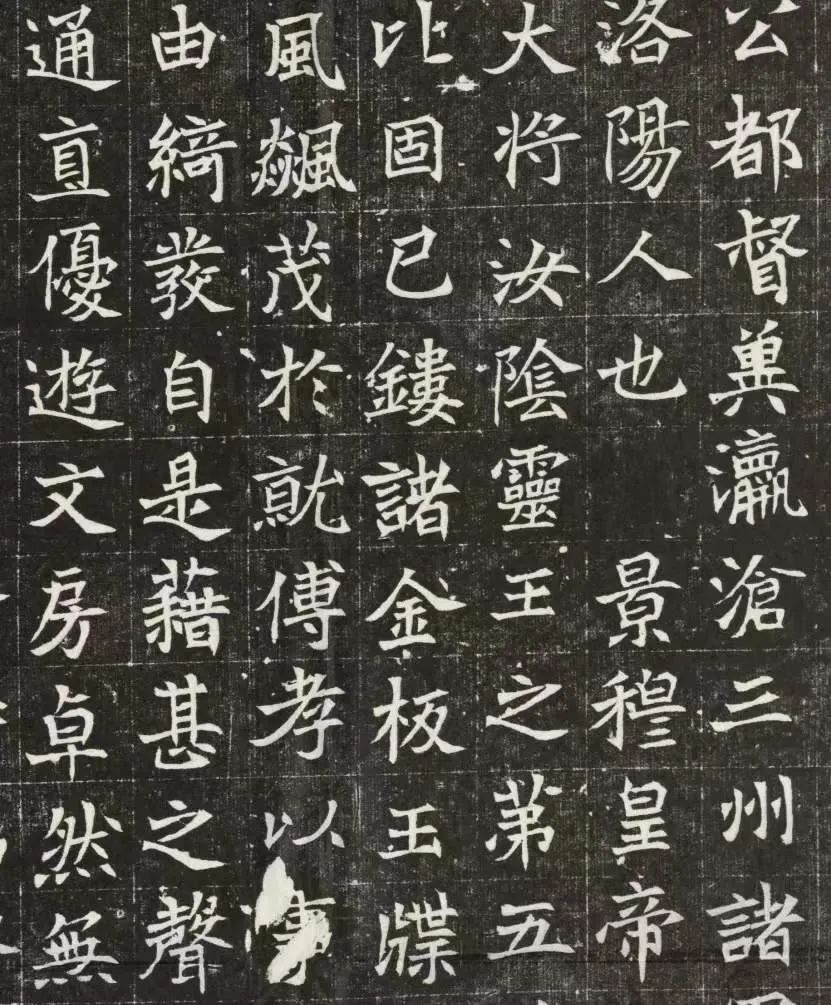 公都督冀瀛滄三州諸
洛陽人也 景穆皇帝
大将汝陰靈王之苐五
比固已鏤諸金板玉牒
風飆茂於就傅孝以事
由綺發自是藉甚之聲
通直優遊文房卓然無